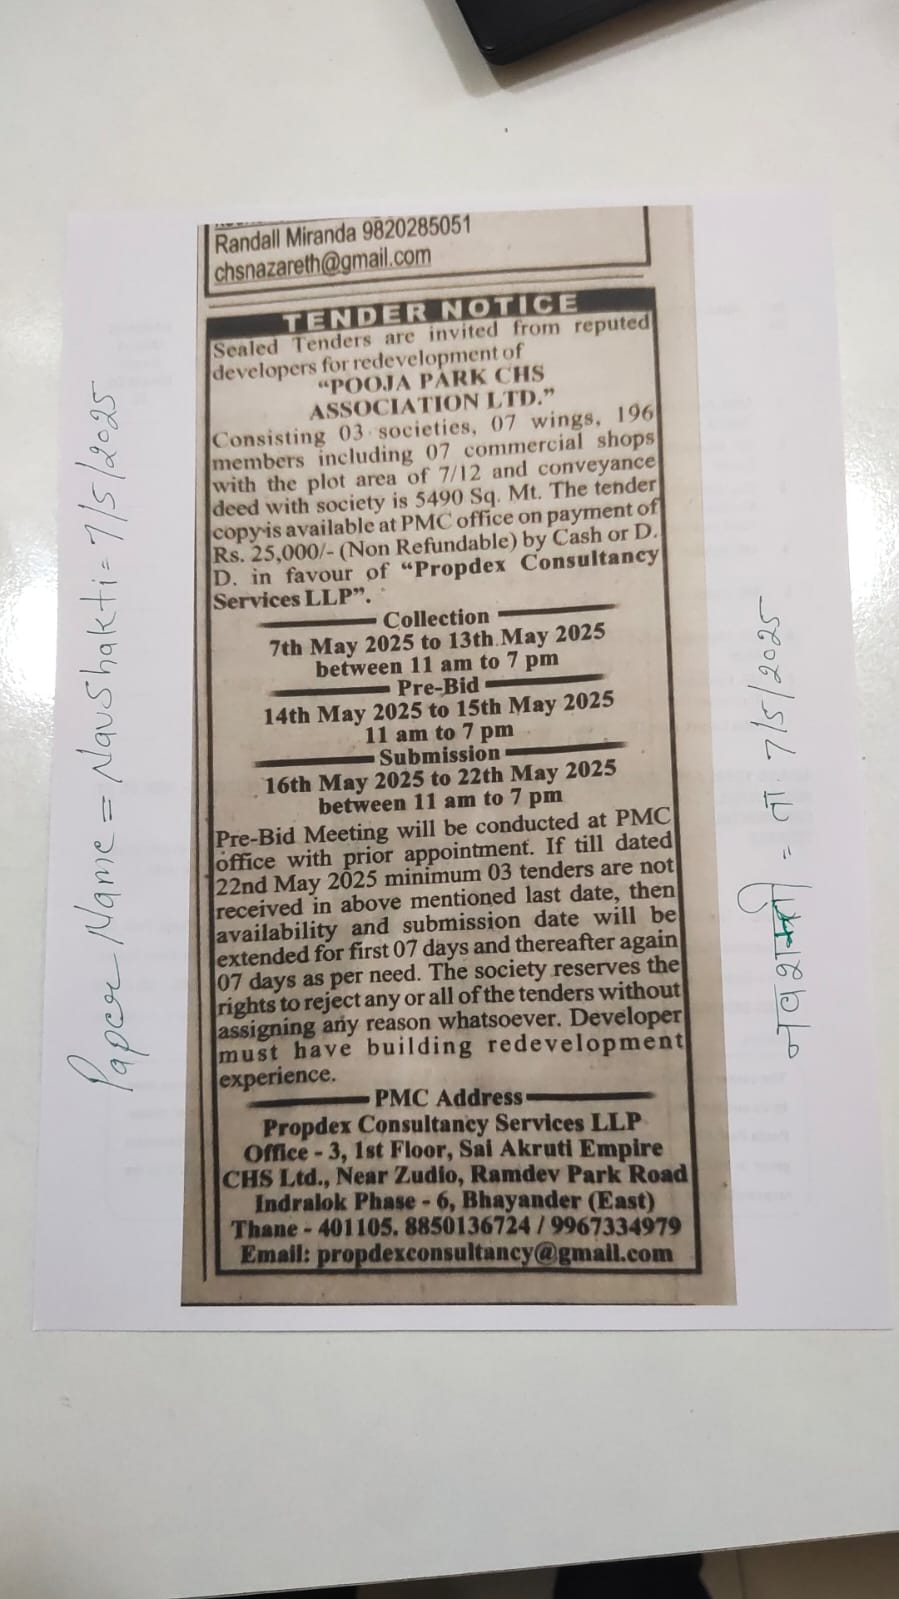 Randall Miranda 9820285051
chsnazareth@gmail.com
TENDER NOTICE
Sealed Tenders are invited from reputed
developers for redevelopment of
“POOJA PARK CHS
ASSOCIATION LTD.”
Consisting 03 societies, 07 wings, 196
members including 07 commercial shops
with the plot area of 7/12 and conveyance
deed with society is 5490 Sq. Mt. The tender
copy is available at PMC office on payment of
Rs. 25,000/- (Non Refundable) by Cash or D.
D. in favour of “Propdex Consultancy
Services LLP”.
Collection
7th May 2025 to 13th May 2025
between 11 am to 7 pm
Pre-Bid
14th May 2025 to 15th May 2025
11 am to 7 pm
Submission
16th May 2025 to 22th May 2025
between 11 am to 7 pm
Pre-Bid Meeting will be conducted at PMC
office with prior appointment. If till dated
22nd May 2025 minimum 03 tenders are not
received in above mentioned last date, then
availability and submission date will be
extended for first 07 days and thereafter again
07 days as per need. The society reserves the
rights to reject any or all of the tenders without
assigning any reason whatsoever. Developer
must have building redevelopment
experience.
PMC Address
Propdex Consultancy Services LLP
Office - 3, 1st Floor, Sai Akruti Empire
CHS Ltd., Near Zudio, Ramdev Park Road
Indralok Phase - 6, Bhayander (East)
Thane - 401105. 8850136724 / 9967334979
Email: propdexconsultancy@gmail.com
Paper Name = Navshakti = 7/5/2025
नवशक्ती = ता 7/5/2025